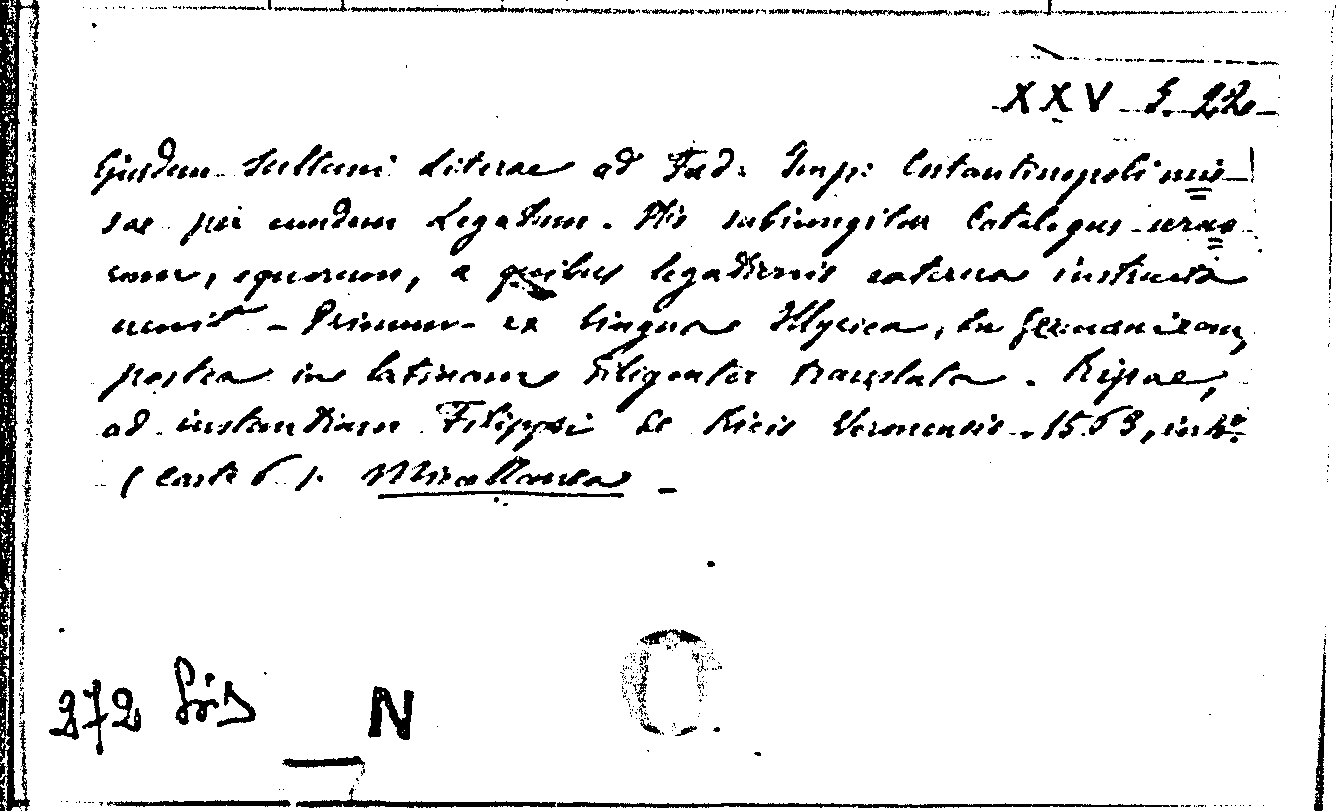 XXV 5. 22
Ejusdem Sultani literae ad Fed. Imp. Costantinopoli mis-
sae per eundem Legatum. His subiungitur Catalogus
equorum, a quibus legationis caterva instructa
venit - Primum ex lingua Illyrica, in Germanicam,
postea in latinam diligenter translata. Ripae,
ad instantiam Filippi de Ricis Veronensis. 1563, in 4º.
(carte 6). Miscellanea -
272
N